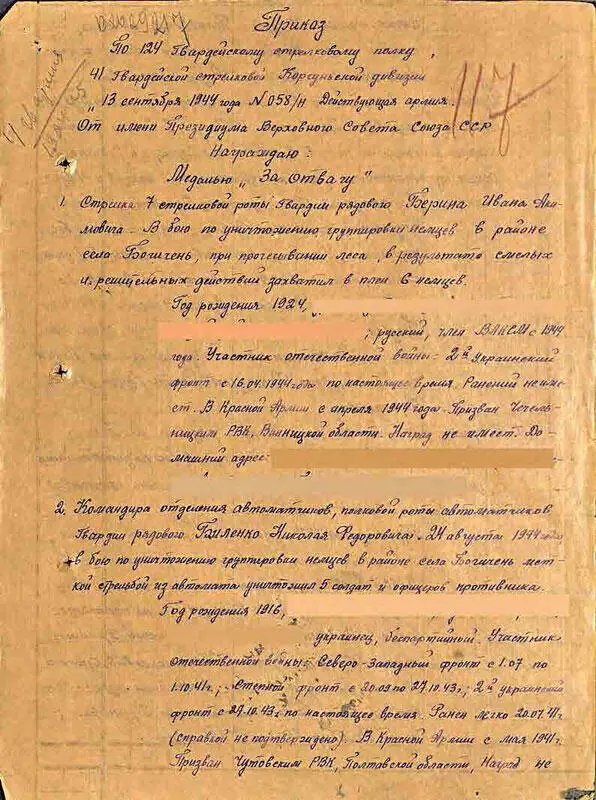 Приказ
По 124 Гвардейскому стрелковому полку,
41 Гвардейской стрелковой Корсуньской дивизии
"13 сентября 1944 года N 058/н Действующая армия.
117
От имени Президиума Верховного Совета Союза ССР
Награждаю:
Медалью "За отвагу"
1. Стрелка 7 стрелковой роты Гвардии рядового Берина Ивана Аки-
мовича. В бою по уничтожению группировки немцев в районе
села Богичень, при прочесывании леса, в результате смелых
и решительных действий захватил в плен 6 немцев.
Год рождения 1924,
русский, член ВЛКСМ с 1944
года. Участник отечественной войны: 2й Украинский
фронт с 16.04.1944 года по настоящее время. Ранений неиме-
ет. В Красной Армии с апреля 1944 года. Призван Чечель-
ницким РВК, Винницкой области. Наград не имеет. До-
машний адрес:
2. Командира отделения автоматчиков, полковой роты автоматчиков
Гвардии рядового Биленко Николая Федоровича. 24 августа 1944 года
в бою по уничтожению группировки немцев в районе села Богичень мет-
кой стрельбой из автомата уничтожил 5 солдат и офицеров противника.
Год рождения 1916,
украинец, беспартийной. Участник
отечественной войны: Северо-Западный фронт с 1.07 по
1.10.41г.; Степной фронт с 20.09 по 27.10.43г; 2й украинский
фронт с 27.10.43г по настоящее время. Ранен легко 20.07.41г
(справкой не подтверждено). В Красной Армии с мая 1941г.
Призван Чутовским РВК, Полтавской области, Наград не